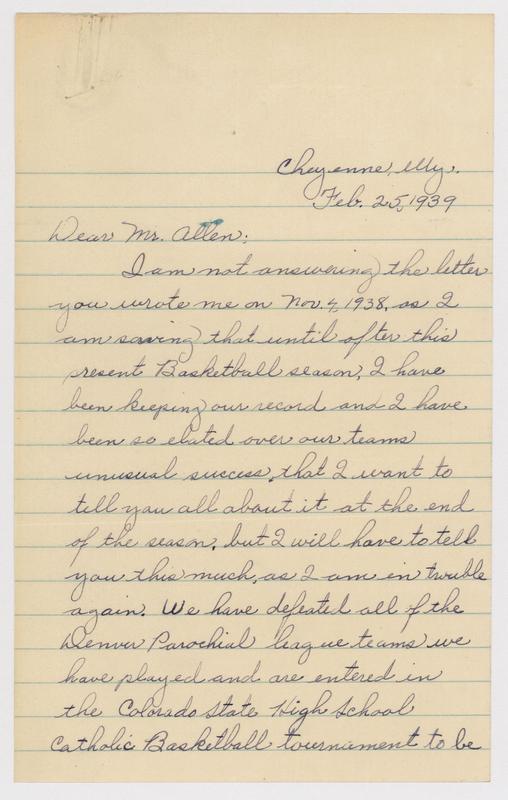 Cheyenne, Wy.
Feb. 25, 1939
Dear Mr. Allen:
I am not answering the letter
you wrote me on Nov. 4, 1938, as I
am saving that until after this
present Basketball season, I have
been keeping our record and I have
been so elated over our teams
unusual success, that I want to
tell you all about it at the end
of the season, but I will have to tell
you this much, as I am in trouble
again. We have defeated all of the
Denver Parochial league teams we
have played and are entered in
the Colorado State High School
Catholic Basketball tournament to be